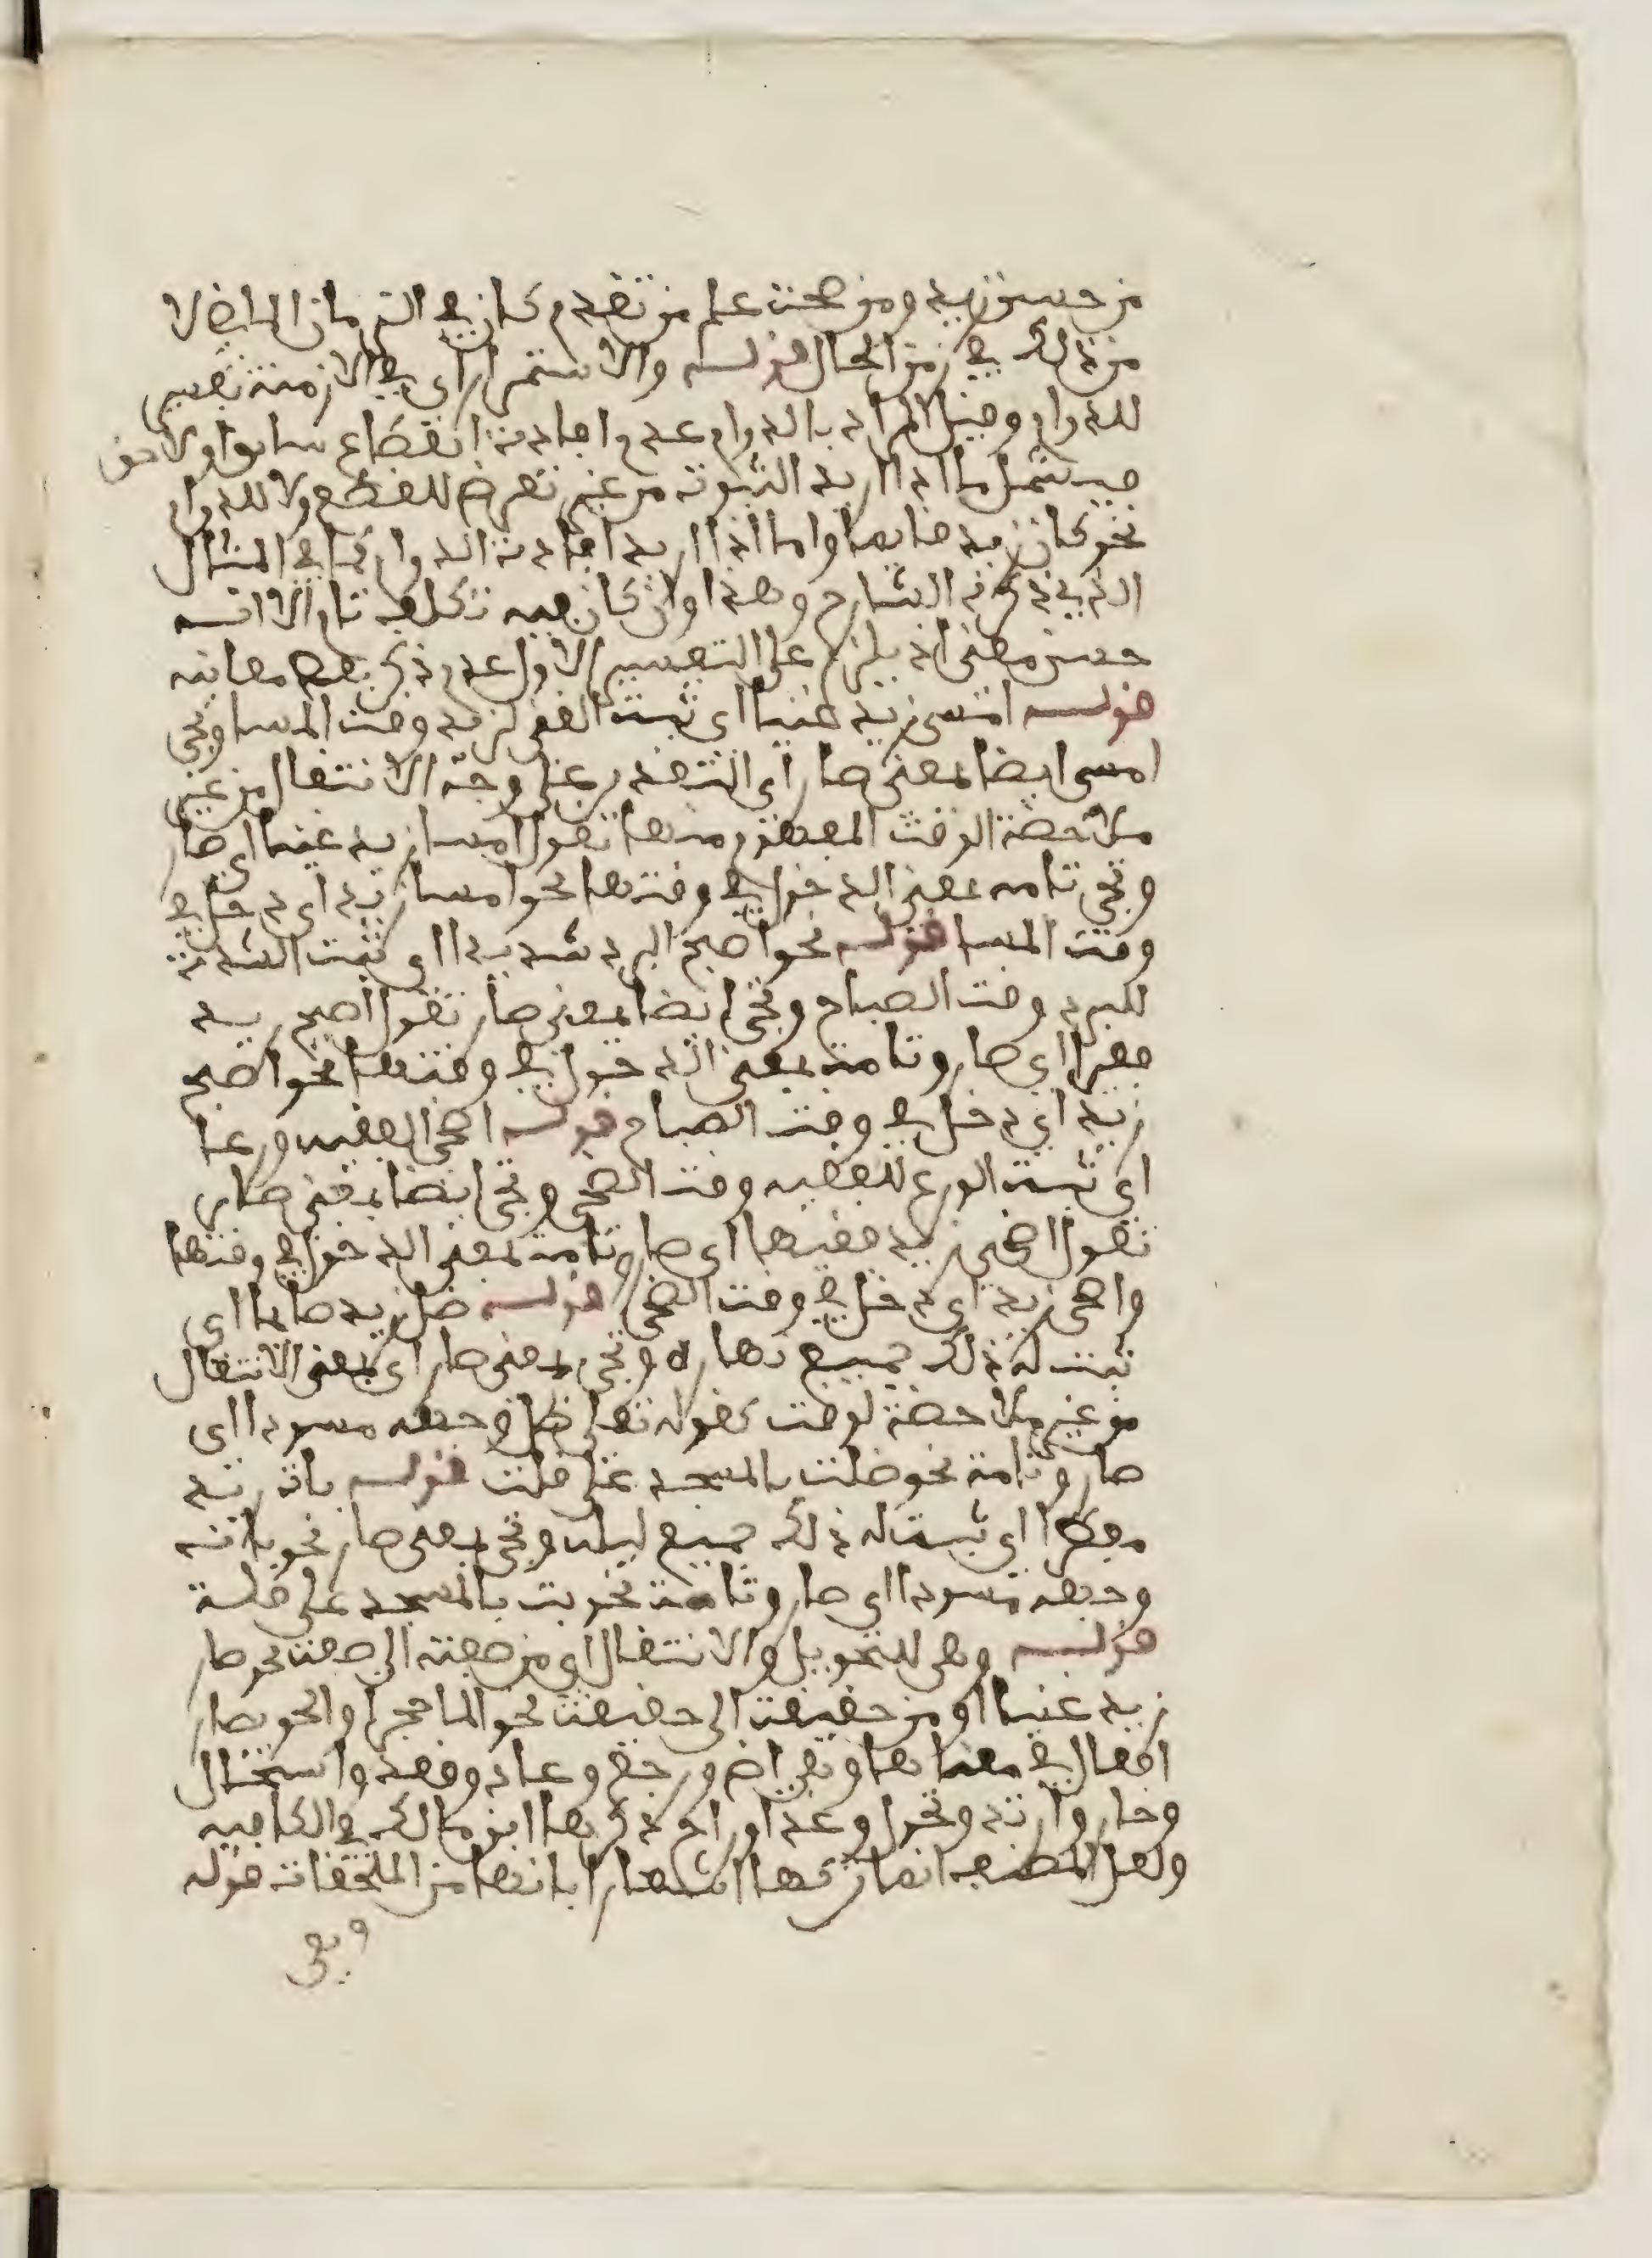 من حسن زيد ومن صحت علم من تقدم كان في الزمان الماضي لا
من ذلك في زمن الحال قوله والاستمرار اي في الازمنة تفسير
للدوام وقيل المراد بالدوام عدم افادة انقطاع سابق او لاحق
فيشمل ما اذا اريد الثبوت من غير تعرض للقطع ولا للدوام
نحو كان زيد ضايعا واما اذا اريد افادة الدوام كما في المثال
الذي ذكره الشارح وهذا وان كان فيه تكلف تام الا انه
حسن معنى اذ يلزم على التفسير الاول عدم ذكر بعض معانيه
قوله امسى زيد غنيا اي ثبت الغنى لزيد وقت المسا وتجي
امسى ايضا بمعنى صار اي التقدير على وجه الانتقال من غير
ملاحظة الوقت المفهوم منها تقول امسا زيد غنيا اي صار
وتجي تامه بمعنى الدخول في وقتها نحو امسا زيد اي دخل في
وقت المسا قوله نحو اصبح البرد شديدا اي ثبت الشدة
للبرد وقت الصباح وتجي ايضا بمعنى صار تقول اصبح زيد
فقيرا اي صار وتامة بمعنى الدخول في وقتها نحو اصبح
زيد اي دخل في وقت الصباح قوله اضحى الفقيه ورعا
اي ثبت الورع للفقيه وقت الضحى وتجي ايضا بمعنى صار
تقول اضحى زيد فقيها اي صار وتامة بمعنى الدخول في وقتها
واضحى زيد اي دخل في وقت الضحى قوله ظل زيد صايما اي
ثبت له ذلك جميع نهاره وتجي بمعنى صار اي بمعنى الانتقال
من غير ملاحظة لوقت كقوله تعلى ظل وجهه مسودا اي
صار وتامة نحو ظلت بالمسجد على قلت قوله بات زيد
مفطرا اي ثبت له ذلك جميع ليله وتجي بمعنى صار نحو باتت
وجهه مسودا اي صار وتامة نحو بت بالمسجد على قلة
قوله وهي للتحويل والانتقال اي من صفة الى صفة نحو صار
زيد غنيا او من حقيقة الى حقيقة نحو الما حجرا والحق بصار
افعال في معناها وهي اض ورجع وعاد وقعد واستحال
وحار وارتد وتحول وغدا وراح ذكرها ابن مالك في الكافيه
ولعل المصنف انما تركها اشعارا بانها من الملحقات قوله
وهي